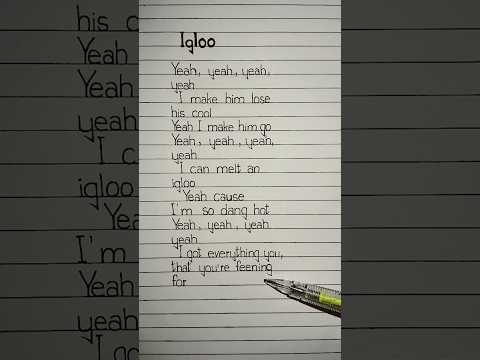 Igloo
Yeah, yeah, yeah,
yeah
I make him lose
his cool
Yeah I make him go
Yeah, yeah, yeah,
yeah
I can melt an
igloo
Yeah cause
I'm so dang hot
Yeah, yeah, yeah
yeah
I got everything you,
that you're feening
for